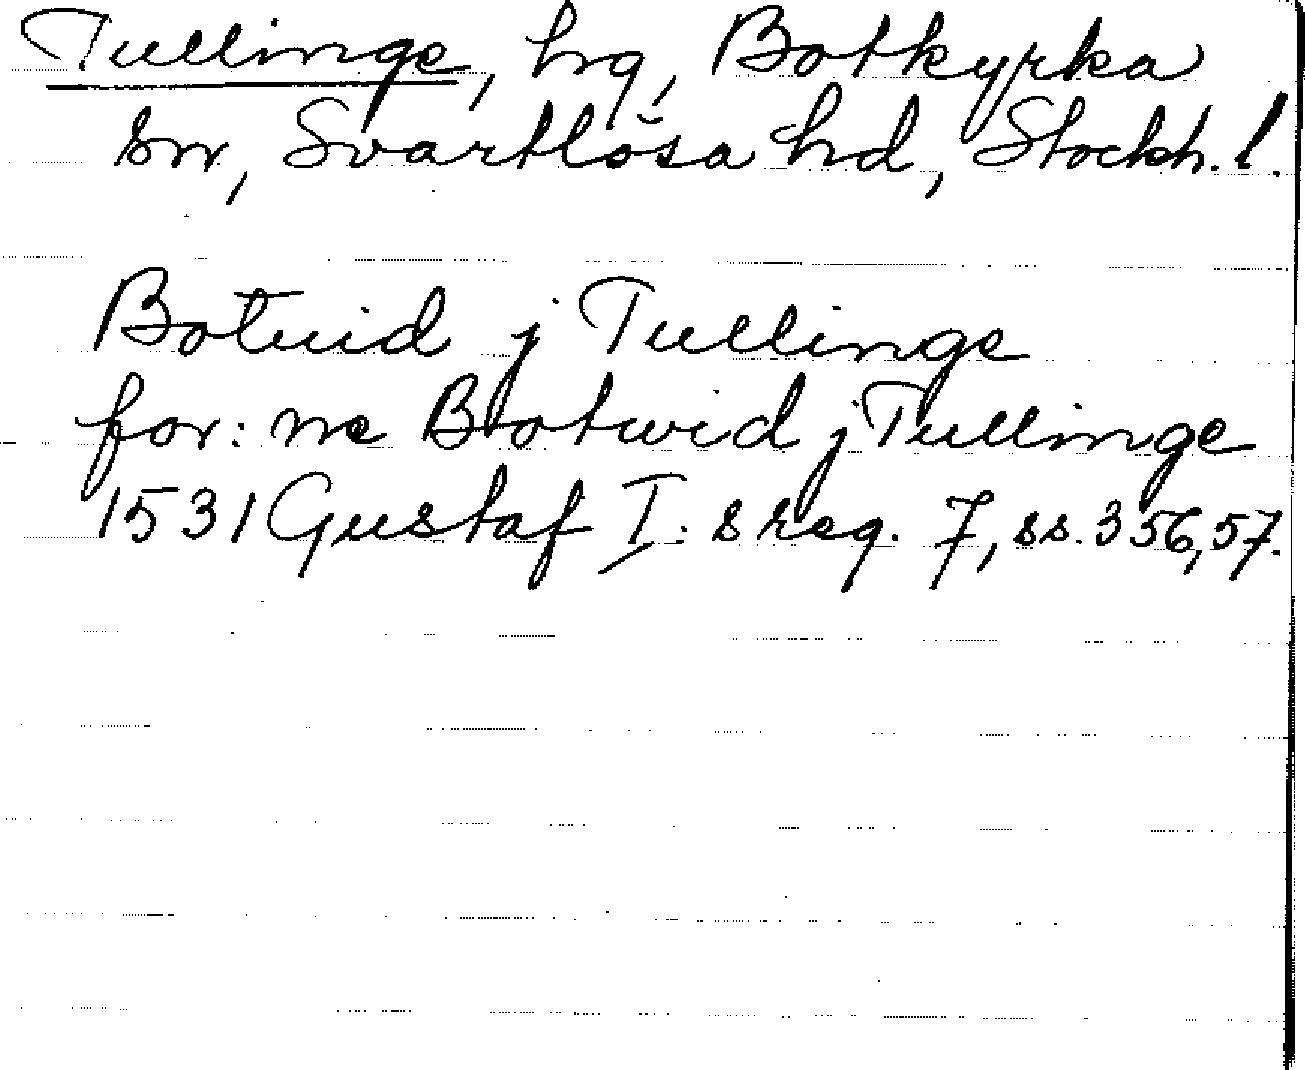 Tullinge, hrg, Botkyrka
sn, Svartlösa hd, Stockh. l.
Botuid j Tullinge
for: ne Botwid j Tullinge
1531 Gustaf I:s reg. 7, ss. 356, 57.